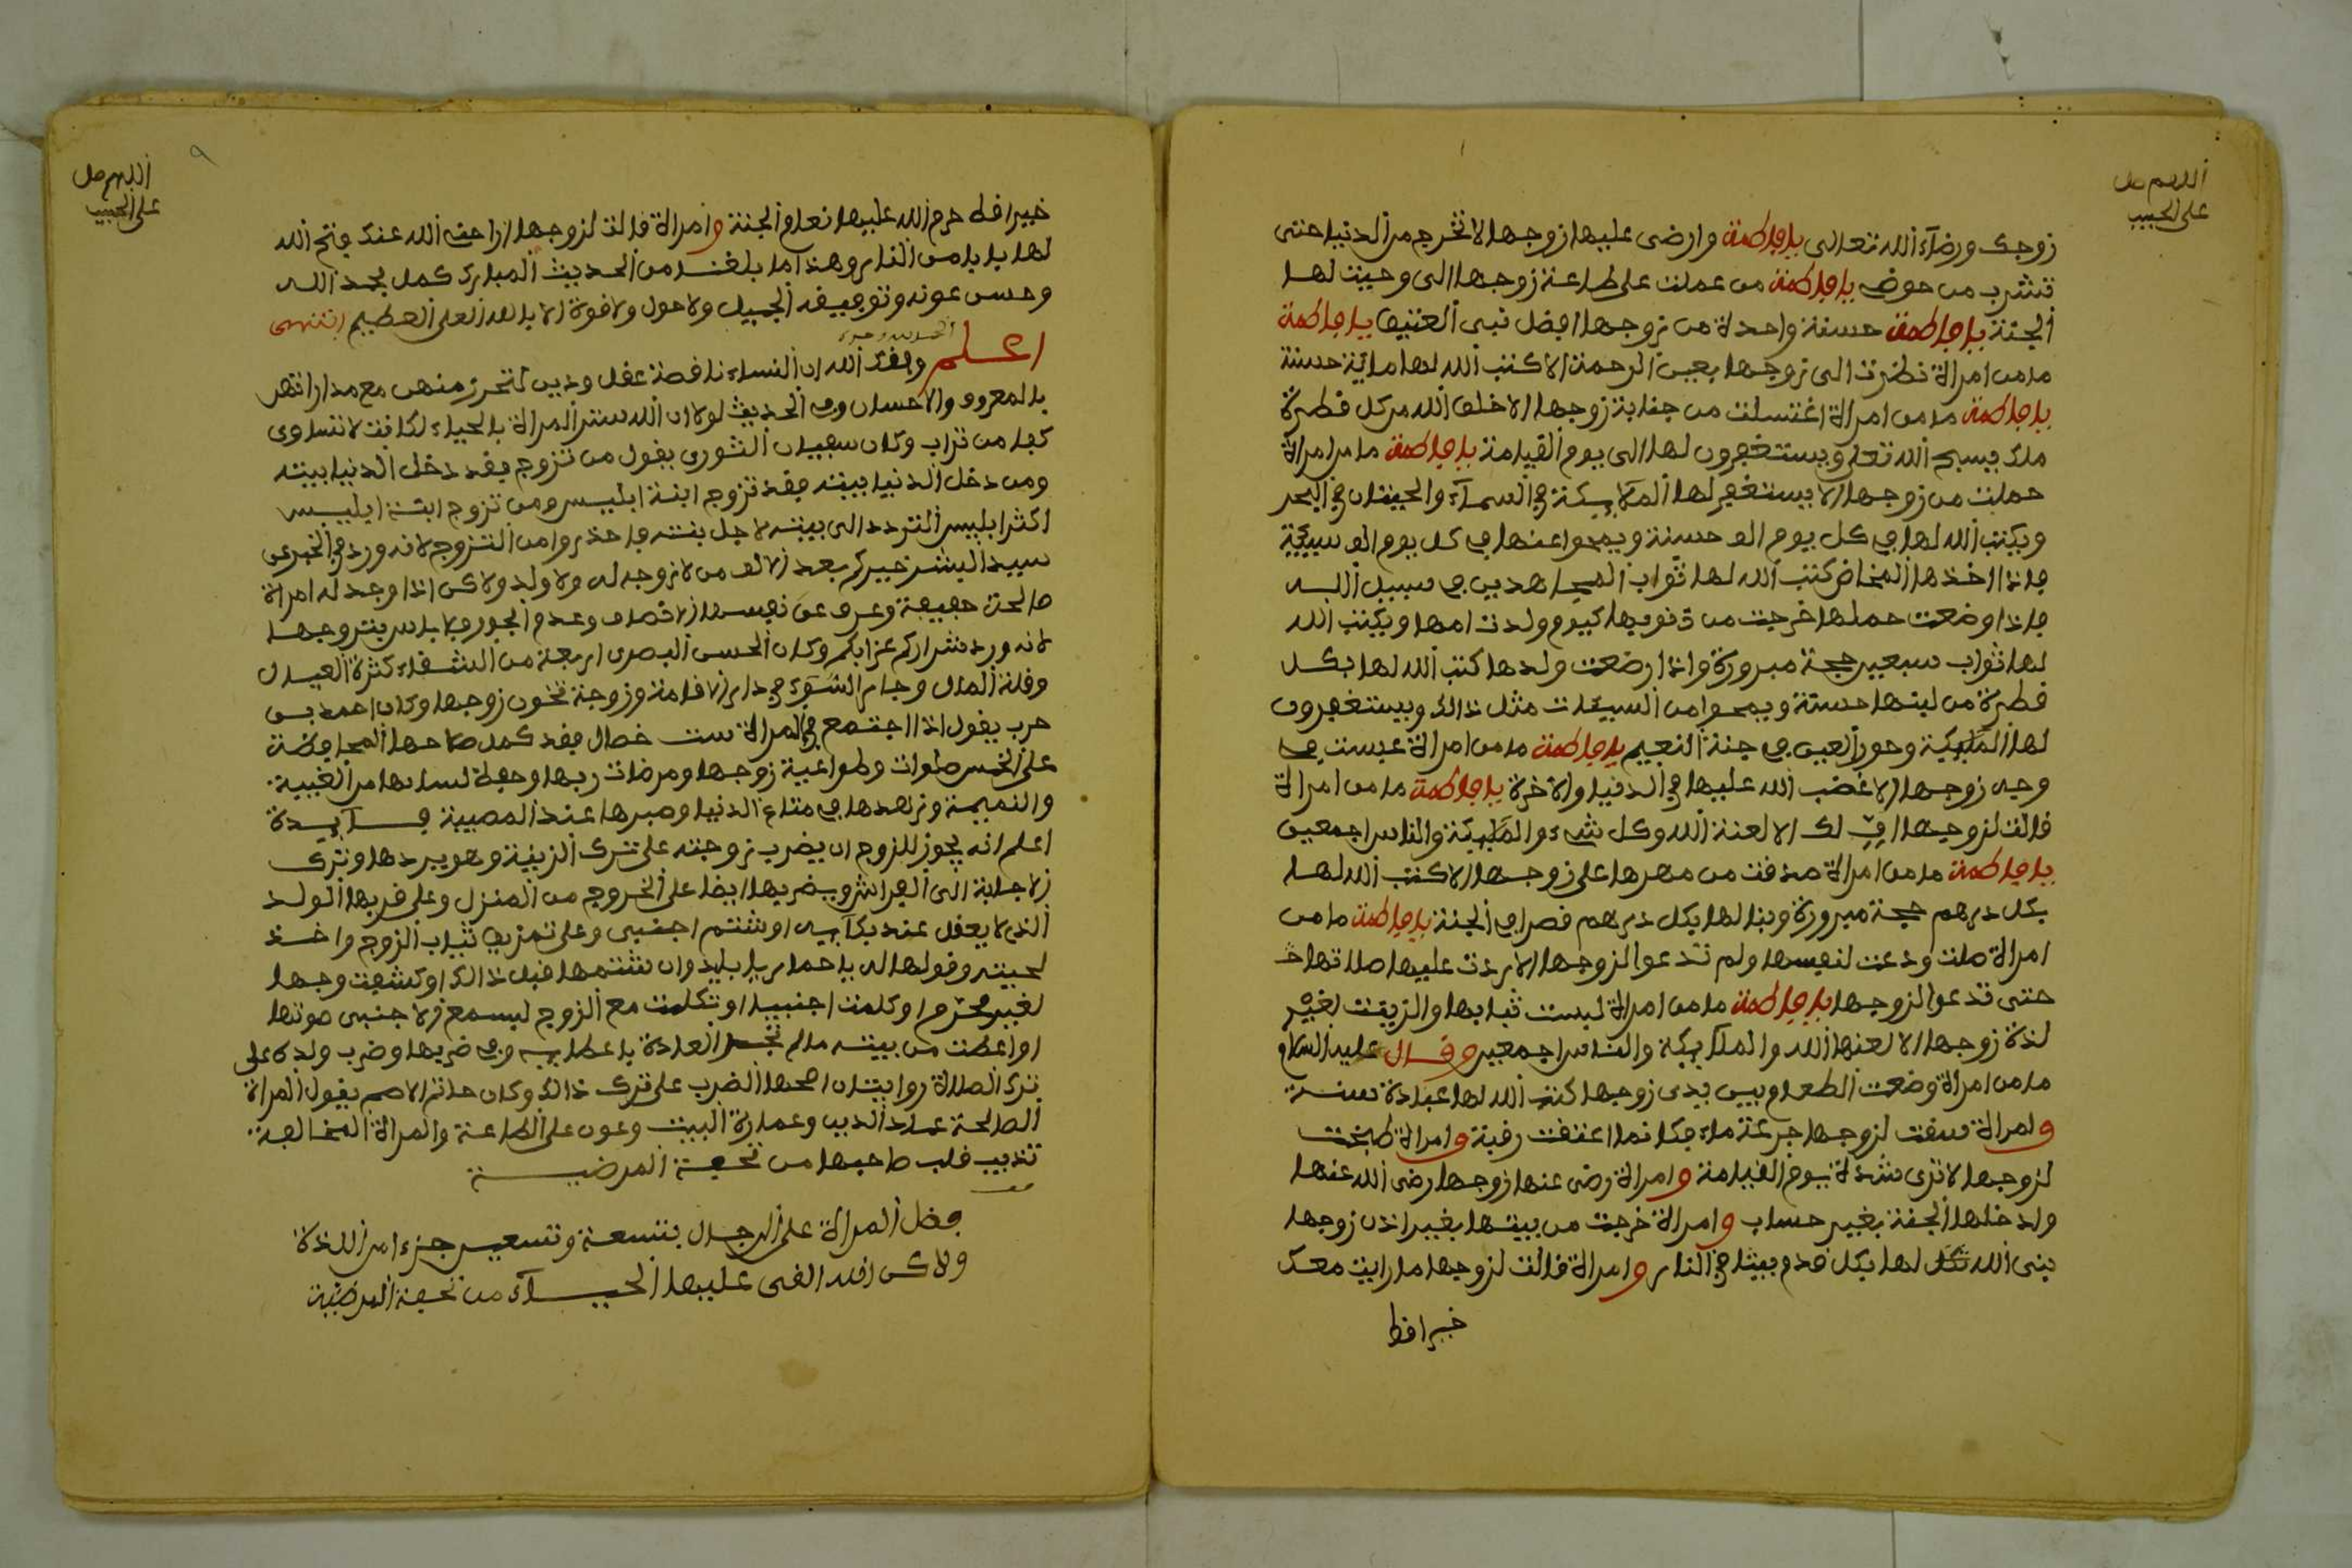 اللهم صل
على الحبيب
زوجك ورضاء الله تعالى يا فاطمة وارضى عليها زوجها لا تخرج من الدنيا حتى
تشرب من حوضي يا فاطمة من عملت على طاعة زوجها الى وجبت لها
الجنة يا فاطمة حسنة واحدة من زوجها افضل يا فاطمة
ما من امراة نظرت الى زوجها بعين الرحمة الا كتب الله لها مائة حسنة
يا فاطمة ما من امراة اغتسلت من جنابة زوجها الا خلق الله من كل قطرة
ملك يسبح الله تعلى ويستغفرون لها الى يوم القيامة يا فاطمة ما من امراة
حملت من زوجها الا يستغفر لها الملايكة في السماء والحيتان في البحر
ويكتب الله لها في كل يوم الف حسنة ويمحوا عنها في كل يوم الف سيئة
فاذا اخذها المخاض كتب الله لها ثواب المجاهدين في سبيل الله
فاذا وضعت حملها خرجت من ذنوبها كيوم ولدت امها ويكتب الله
لها ثواب سبعين حجة مبرورة واذا ارضعت ولدها كتب الله لها بكل
قطرة من لبنها حسنة ويمحوا من السيئات مثل ذالك ويستغفرون
لها الملئكة وحور العين في جنة النعيم يا فاطمة ما من امراة عبست في
وجه زوجها الا غضب الله عليها في الدنيا والاخرة يا فاطمة ما من امراة
قالت لزوجها اف لك الا لعنة الله وكل شيء والملئكة والناس اجمعين
يا فاطمة ما من امراة صدقت من مهرها على زوجها الا كتب الله لها
بكل درهم حجة مبرورة وبنا لها بكل درهم قصرا في الجنة يا فاطمة ما من
امراة صلت ودعت لنفسها ولم تدعوا لزوجها الا ردت عليها صلاتها
حتى تدعوا لزوجها يا فاطمة ما من امراة لبست ثيابها والزينت لغير
لذة زوجها الا لعنها الله والملآيكة والناس اجمعين وقال عليه السلام
ما من امراة وضعت الطعام بين يدي زوجها كتب الله لها عبادة سنة
وامراة سقت لزوجها جرعة ماء فكانما اعتقت رقبة وامراة طبخت
لزوجها لا ترى شدة يوم القيامة وامراة رضى عنها زوجها رضى الله عنها
وادخلها الجنة بغير حساب وامراة خرجت من بيتها بغير اذن زوجها
بنى الله لها بكل قدم بيتا في النار وامراة قالت لزوجها ما رايت معك
خيرا قط
اللهم صل
على الحبيب
٩
خيرا قط حرم الله عليها نعام الجنة وامراة قالت لزوجها اراحني الله عنك فتح الله
لها بابا من النار وهذا ما بلغنا من الحديث المبارك كمل بحمد الله
وحسن عونه وتوفيقه الجميل ولا حول ولا قوة الا بالله العلي العظيم انتهى
الحمد لله وحده
اعلم وفقك الله ان النساء ناقصة عقل ودين لتحرز منهن مع مداراتهن
بالمعروف والاحسان وفي الحديث لولا ان الله ستر المراة بالحياء لكانت لا تساوى
كفا من تراب وكان سفيان الثورى يقول من تزوج فقد دخل الدنيا بيته
ومن دخل الدنيا بيته فقد تزوج ابنة ابليس ومن تزوج ابنة ابليس
اكثر ابليس التردد الى بيته لاجل بنته فاحذروا من التزوج لانه ورد في الخبر عن
سيد البشر خيركم بعد الالف من لا زوجه له ولا ولد ولاكن اذا وجد له امراة
صالحة عفيفة وعرف عن نفسه الانصاف وعدم الجور فلا باس بتزوجها
لانه ورد شراركم عزابكم وكان الحسن البصرى اربعة من الشقاء كثرة العيال
وقلة المال وجار السوء في دار الاقامة وزوجة تخون زوجها وكان احمد بن
حرب يقول اذا اجتمع في المراة ست خصال فقد كمل صلاحها المحافظة
على الخمس صلوات وطواعية زوجها ومرضات ربها وحفظ لسانها من الغيبة
والنميمة وزهدها في متاع الدنيا وصبرها عند المصيبة فــايدة
اعلم انه يجوز للزوج ان يضرب زوجته على ترك الزينة وهو يريدها وترك
الاجابة الى الفراش ويضربها ايضا على الخروج من المنزل وعلى ضربها الولد
الذي لا يعقل عند بكآيه او شتم اجنبى وعلى تمزيق ثياب الزوج واخذ
لحيته وقولها له يا حمار يا بليد وان شتمها قبل ذالك او كشفت وجها
لغير محرم او كلمت اجنبيا او تكلمت مع الزوج ليسمع الاجنبى صوتها
او اعطت من بيته مالم تجر العادة باعطايه وفي ضربها وضرب ولده على
ترك الصلاة روايتان اصحها الضرب على ترك ذالك وكان حاتم الاصم يقول المراة
الصالحة عماد الدين وعمارة البيت وعون على الطاعة والمراة المخالفة
تذيب قلب صاحبها من تحفة المرضية
فضل المراة على الرجال بتسعة وتسعين جزءا من اللذة
ولاكن الله القى عليها الحيــاء من تحفة المرضية